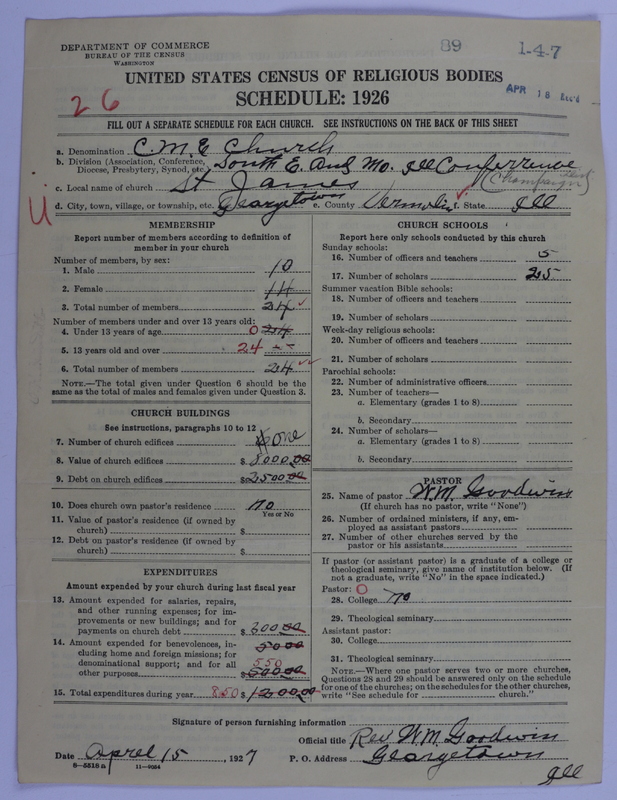 DEPARTMENT OF COMMERCE
BUREAU OF THE CENSUS
WASHINGTON
89
1-4-7
APR 18 Rec'd
UNITED STATES CENSUS OF RELIGIOUS BODIES
SCHEDULE: 1926
26
FILL OUT A SEPARATE SCHEDULE FOR EACH CHURCH. SEE INSTRUCTIONS ON THE BACK OF THIS SHEET
a. Denomination C.M.E Church
b. Division (Association, Conference, Diocese, Presbytery, Synod, etc.) South E. and Mo. Ill Conference
(Champaign Dist)
c. Local name of church St James
d. City, town, village, or township, etc. Georgetown e. County Vermolin f. State Ill
U
MEMBERSHIP
Report number of members according to definition of
member in your church
Number of members, by sex:
1. Male 10
2. Female 14
3. Total number of members 24
Number of members under and over 13 years old:
4. Under 13 years of age 0 24
5. 13 years old and over 24 --
6. Total number of members 24
NOTE.—The total given under Question 6 should be the
same as the total of males and females given under Question 3.
CHURCH BUILDINGS
See instructions, paragraphs 10 to 12
7. Number of church edifices one
8. Value of church edifices $ 8000.00
9. Debt on church edifices $ 2500.00
10. Does church own pastor's residence no
Yes or No
11. Value of pastor's residence (if owned by
church) $
12. Debt on pastor's residence (if owned by
church) $
EXPENDITURES
Amount expended by your church during last fiscal year
13. Amount expended for salaries, repairs,
and other running expenses; for im-
provements or new buildings; and for
payments on church debt $ 300.00
14. Amount expended for benevolences, in-
cluding home and foreign missions; for
denominational support; and for all
other purposes $ 550
15. Total expenditures during year 850 $ 1200.00
CHURCH SCHOOLS
Report here only schools conducted by this church
Sunday schools:
16. Number of officers and teachers 5
17. Number of scholars 25
Summer vacation Bible schools:
18. Number of officers and teachers
19. Number of scholars
Week-day religious schools:
20. Number of officers and teachers
21. Number of scholars
Parochial schools:
22. Number of administrative officers
23. Number of teachers—
a. Elementary (grades 1 to 8)
b. Secondary
24. Number of scholars—
a. Elementary (grades 1 to 8)
b. Secondary
PASTOR
25. Name of pastor W.M. Goodwin
(If church has no pastor, write "None")
26. Number of ordained ministers, if any, em-
ployed as assistant pastors
27. Number of other churches served by the
pastor or his assistants
If pastor (or assistant pastor) is a graduate of a college or
theological seminary, give name of institution below. (If
not a graduate, write "No" in the space indicated.)
Pastor: O
28. College no
29. Theological seminary
Assistant pastor:
30. College
31. Theological seminary
NOTE.—Where one pastor serves two or more churches,
Questions 28 and 29 should be answered only on the schedule
for one of the churches; on the schedules for the other churches,
write "See schedule for ........ church."
Signature of person furnishing information
Official title Rev W.M. Goodwin
Date April 15, 1927 P. O. Address Georgetown
Ill
8-5518 a 11-9054